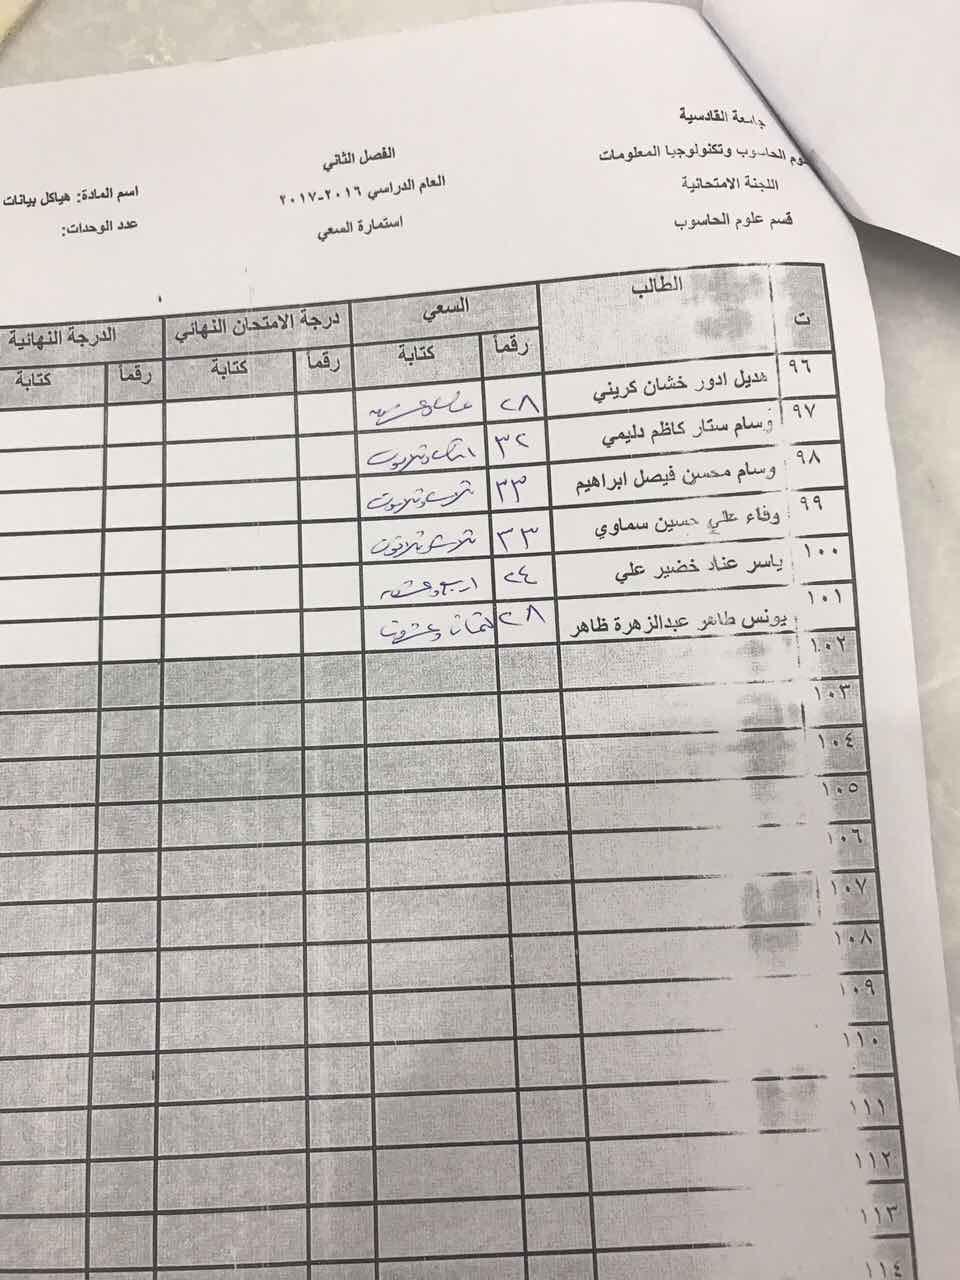 جامعة القادسية
علوم الحاسوب وتكنولوجيا المعلومات
اللجنة الامتحانية
قسم علوم الحاسوب
الفصل الثاني
العام الدراسي ٢٠١٦-٢٠١٧
استمارة السعي
اسم المادة: هياكل بيانات
عدد الوحدات:
ت الطالب السعي درجة الامتحان النهائي الدرجة النهائية
رقماً كتابة رقماً كتابة رقماً كتابة
٩٦ هديل ادور خشان كريني ٢٨ ثمان وعشرون
٩٧ وسام ستار كاظم دليمي ٣٢ اثنان وثلاثون
٩٨ وسام محسن فيصل ابراهيم ٣٣ ثلاث وثلاثون
٩٩ وفاء علي حسين سماوي ٣٣ ثلاث وثلاثون
١٠٠ ياسر عناد خضير علي ٢٤ اربع وعشرون
١٠١ يونس طاهر عبدالزهرة ظاهر ٢٨ ثمان وعشرون
١٠٢
١٠٣
١٠٤
١٠٥
١٠٦
١٠٧
١٠٨
١٠٩
١١٠
١١١
١١٢
١١٣
١١٤